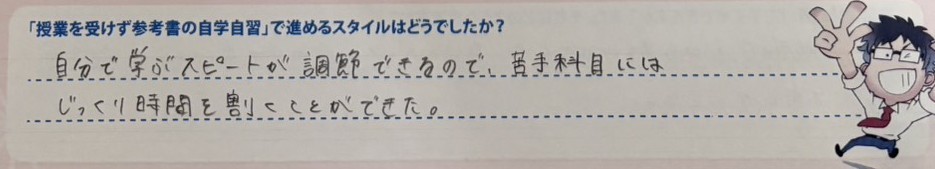 「授業を受けず参考書の自学自習」で進めるスタイルはどうでしたか？
自分で学ぶスピードが調節できるので、苦手科目には
じっくり時間を割くことができた。